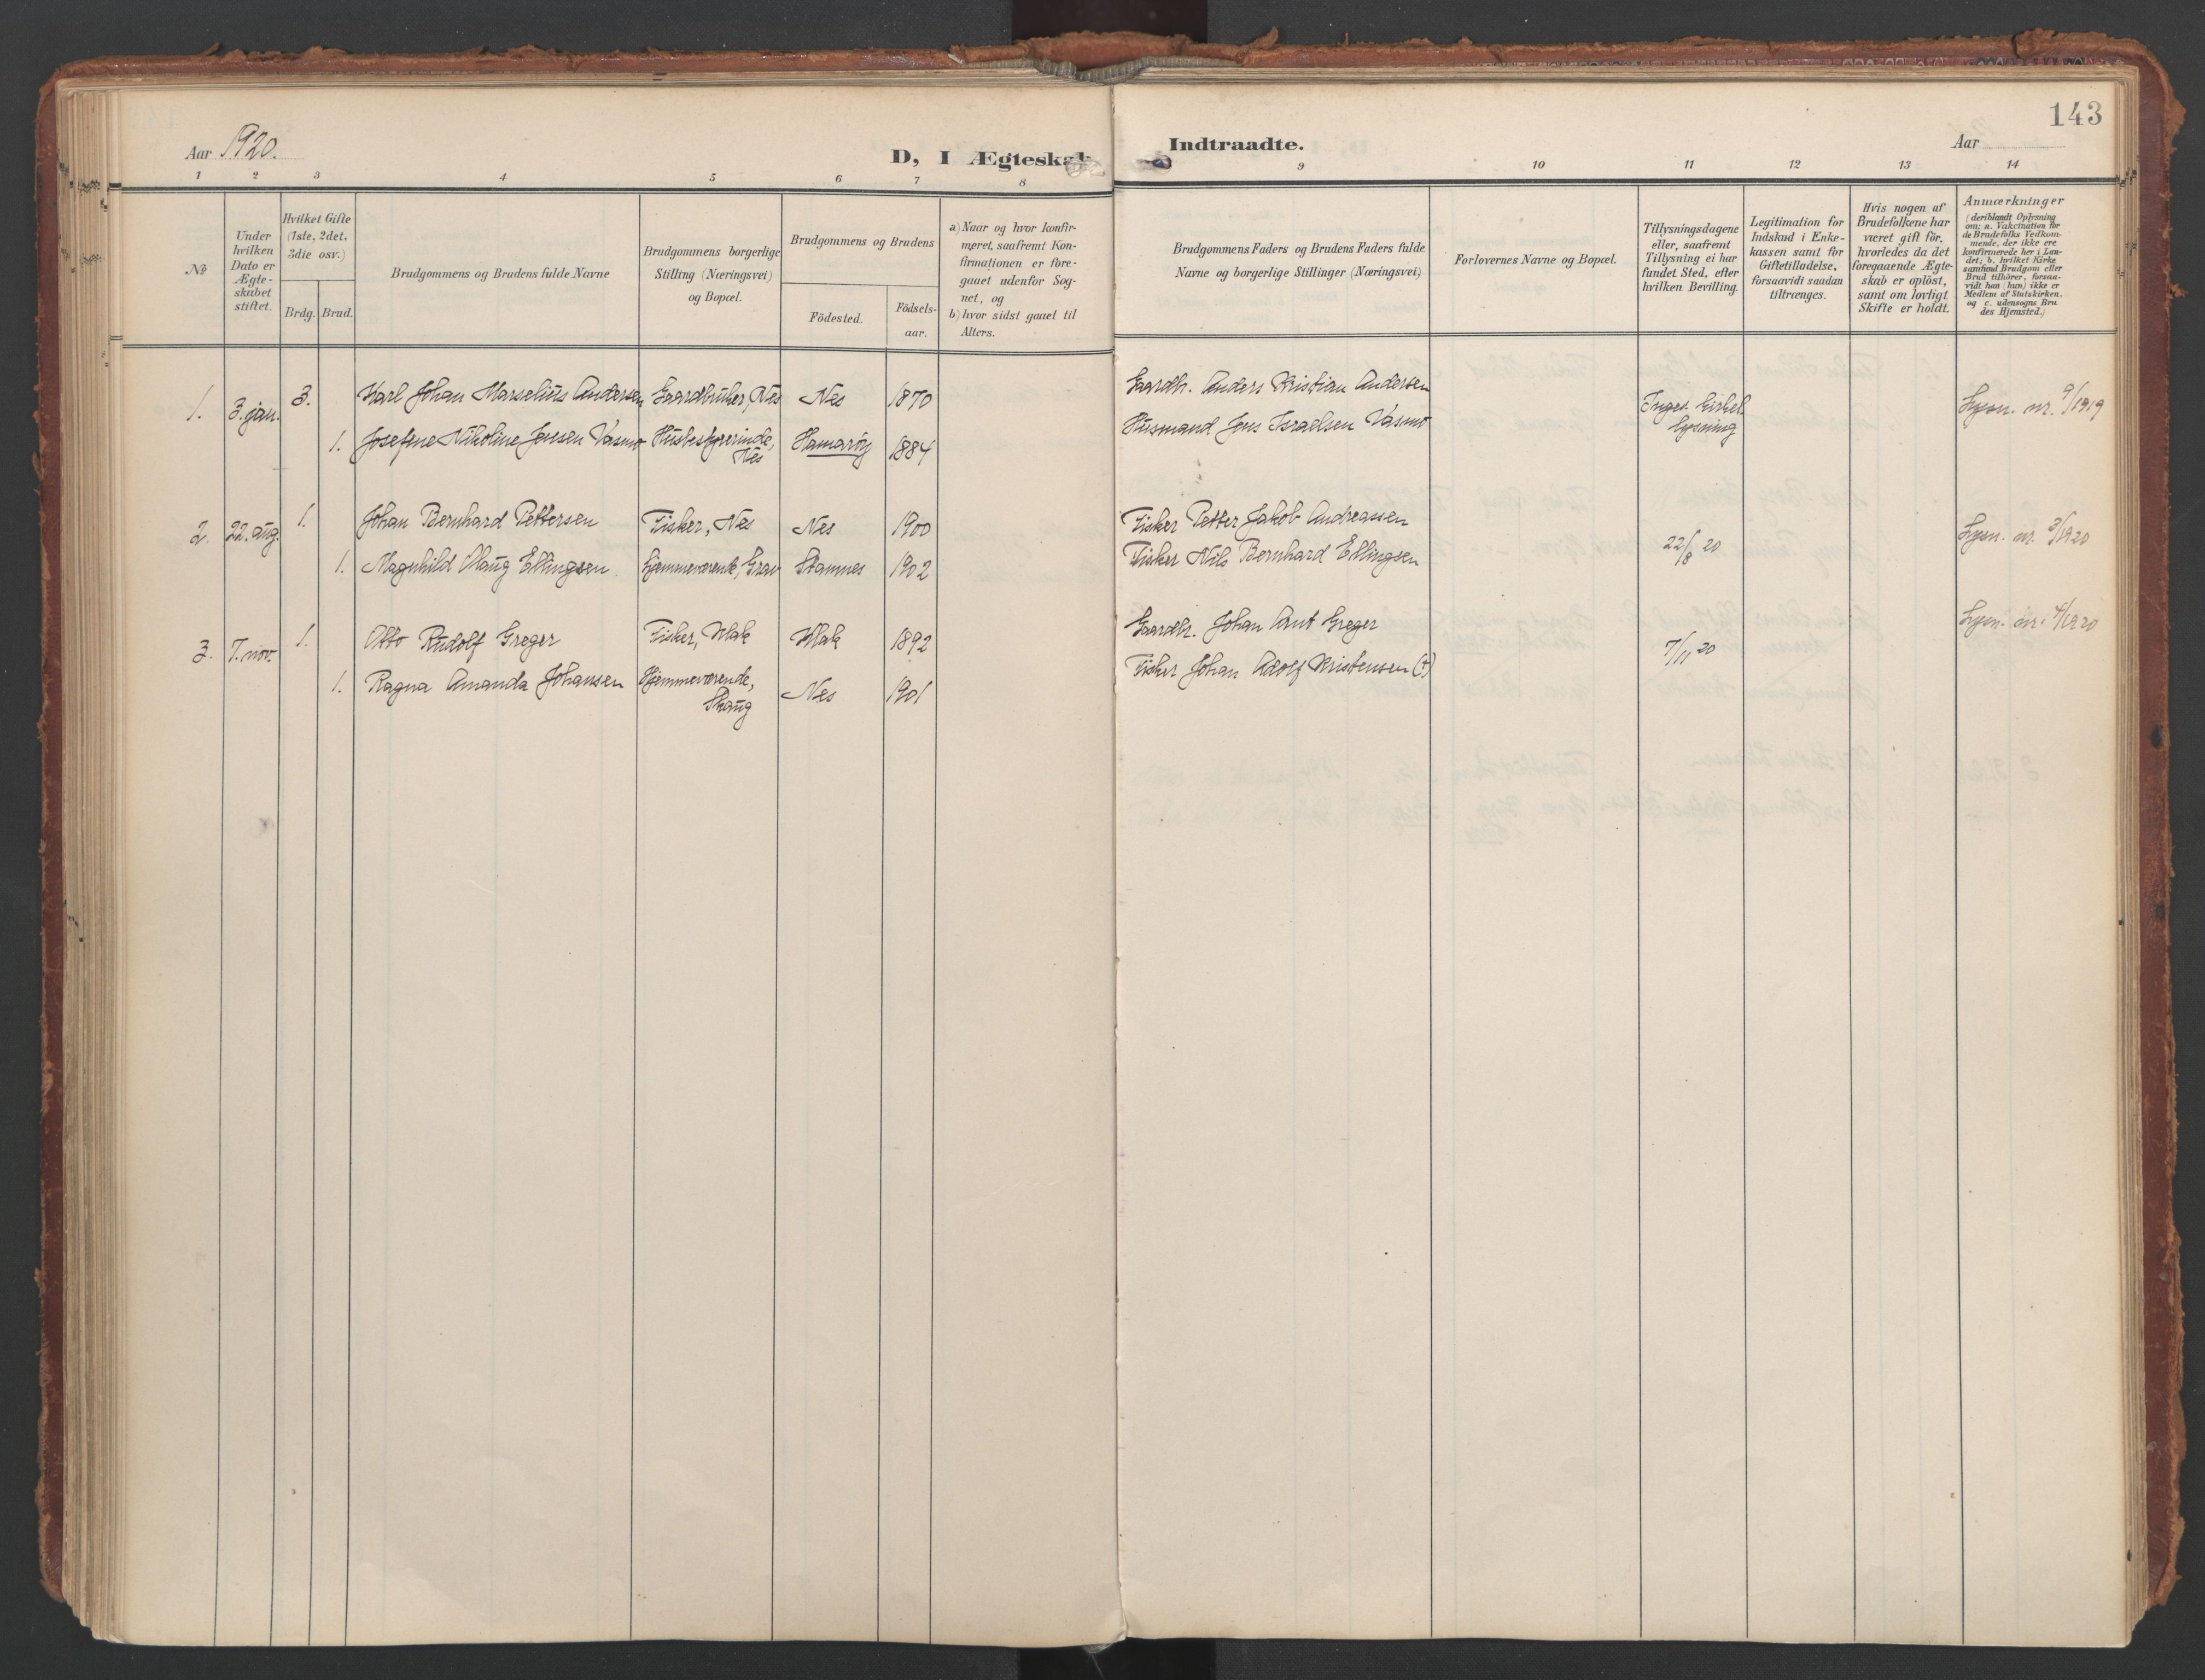 143
Aar 1920.
D, I Ægteskab
Indtraadte.
Aar
1 2 3 4 5 6 7 8 9 10 11 12 13 14
№
Under hvilken Dato er Ægte-skabet stiftet.
Hvilket Gifte (1ste, 2det, 3die osv.)
Brdg. Brud.
Brudgommens og Brudens fulde Navne
Brudgommens borgerlige Stilling (Næringsvei) og Bopæl.
Brudgommens og Brudens
Födested.
Födsels-aar.
a) Naar og hvor konfir-
meret, saafremt Kon-
firmationen er fore-
gaaet udenfor Sog-
net, og
b) hvor sidst gaaet til
Alters.
Brudgommens Faders og Brudens Faders fulde
Navne og borgerlige Stillinger (Næringsvei)
Forlovernes Navne og Bopæl.
Tillysningsdagene
eller, saafremt
Tillysning ei har
fundet Sted, efter
hvilken Bevilling.
Legitimation for
Indskud i Enke-
kassen samt for
Giftetilladelse,
forsaavidt saadan
tiltrænges.
Hvis nogen af
Brudefolkene har
været gift för,
hvorledes da det
foregaaende Ægte-
skab er oplöst,
samt om lovligt
Skifte er holdt.
Anmærkninger
(deriblandt Oplysning
om: a. Vakcination for
de Brudefolks Vedkom-
mende, der ikke ere
konfirmerede her i Lan-
det; b. hvilket Kirke
samfund Brudgom eller
Brud tilhörer, forsaa-
vidt han (hun) ikke er
Medlem af Statskirken.
og c. udensogns Bru
des Hjemsted.)
1. 3. jan. 3. Karl Johan Marselius Andersen Gaardbruker, Nes Nes 1870 Gaardbr. Anders Kristian Andersen Inges kirkel. lysning Lysn. nr. 9/1919
1. Josefine Nikoline Jensen Vasmo Husbestyrerinde, Nes Hamarøy 1884 Husmand Jens Israelsen Vasmo
2. 22. aug. 1. Johan Bernhard Pettersen Fisker, Nes Nes 1900 Fisker Petter Jakob Andreassen 22/8 20 Lysn. nr. 3/1920
1. Magnhild Olaug Ellingsen Hjemmeværende, Grav Stamnes 1902 Fisker Nils Bernhard Ellingsen
3. 7. nov. 1. Otto Rudolf Greger Fisker, Vlak Vlak 1892 Gaardbr. Johan Arnt Greger 7/11 20 Lysn. nr. 4/1920
1. Ragna Amanda Johansen Hjemmeværende, Skaug Nes 1901 Fisker Johan Adolf Kristensen (†)